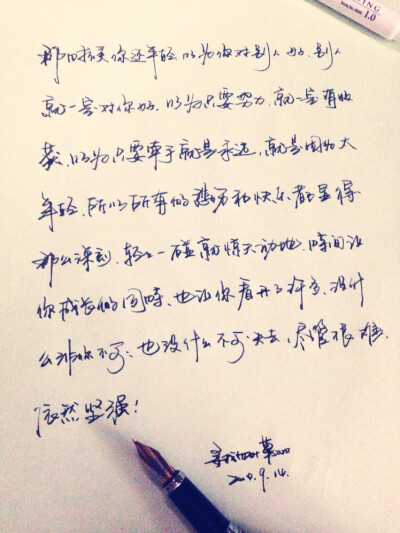 ING
1.0
那时候你还年轻.以为你对别人好.别人
就一定对你好.以为只要努力.就一定有收
获.以为只要牵手就是永远.就是因为太
年轻.所以所有的悲伤和快乐都显得
那么深刻.轻轻一碰就惊天动地.时间让
你成长的同时.也让你看开了许多.没什
么非你不可.也没什么不可失去.尽管很难.
依然坚强!
9.14.